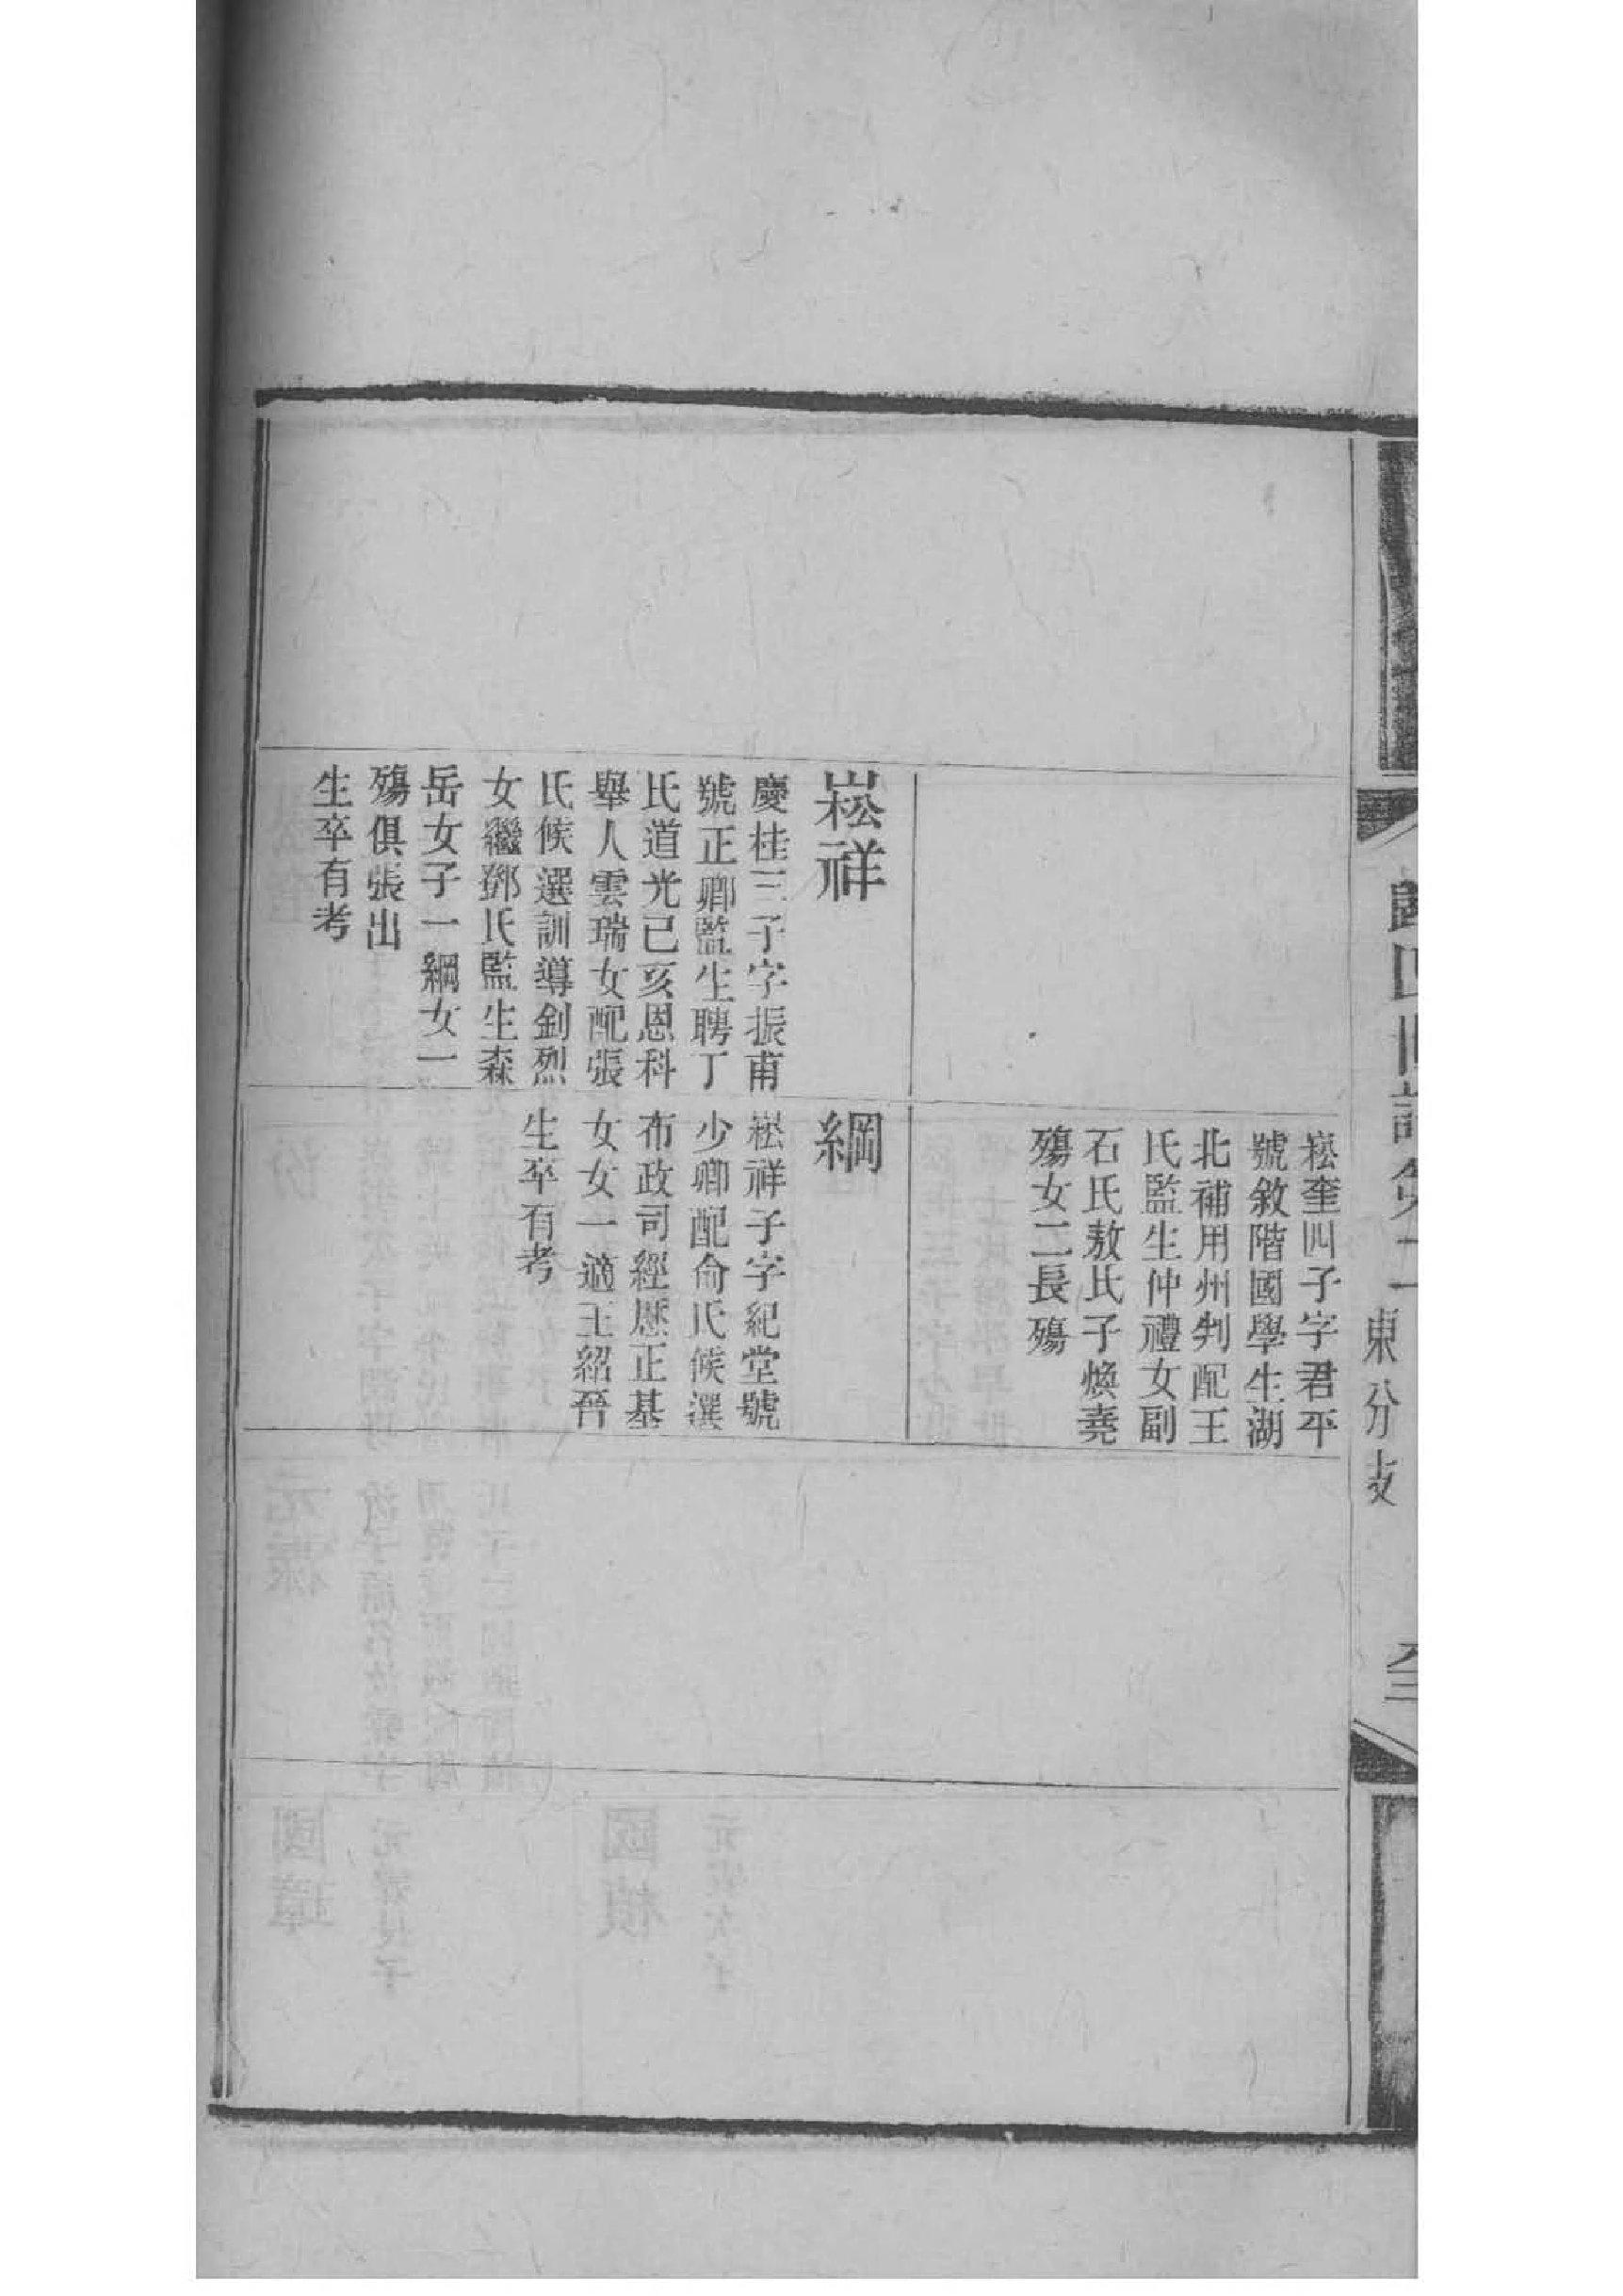 東分支
崧奎四子字君平
號敘階國學生湖
北補用州判配王
氏監生仲禮女副
石氏敖氏子煥堯
殤女二長殤
崧祥
慶桂三子字振甫
號正卿監生聘丁
氏道光己亥恩科
舉人雲瑞女配張
氏候選訓導釗烈
女繼鄧氏監生森
岳女子一綱女一
殤俱張出
生卒有考
綱
崧祥子字紀堂號
少卿配俞氏候選
布政司經歷正基
女女一適王紹晉
生卒有考